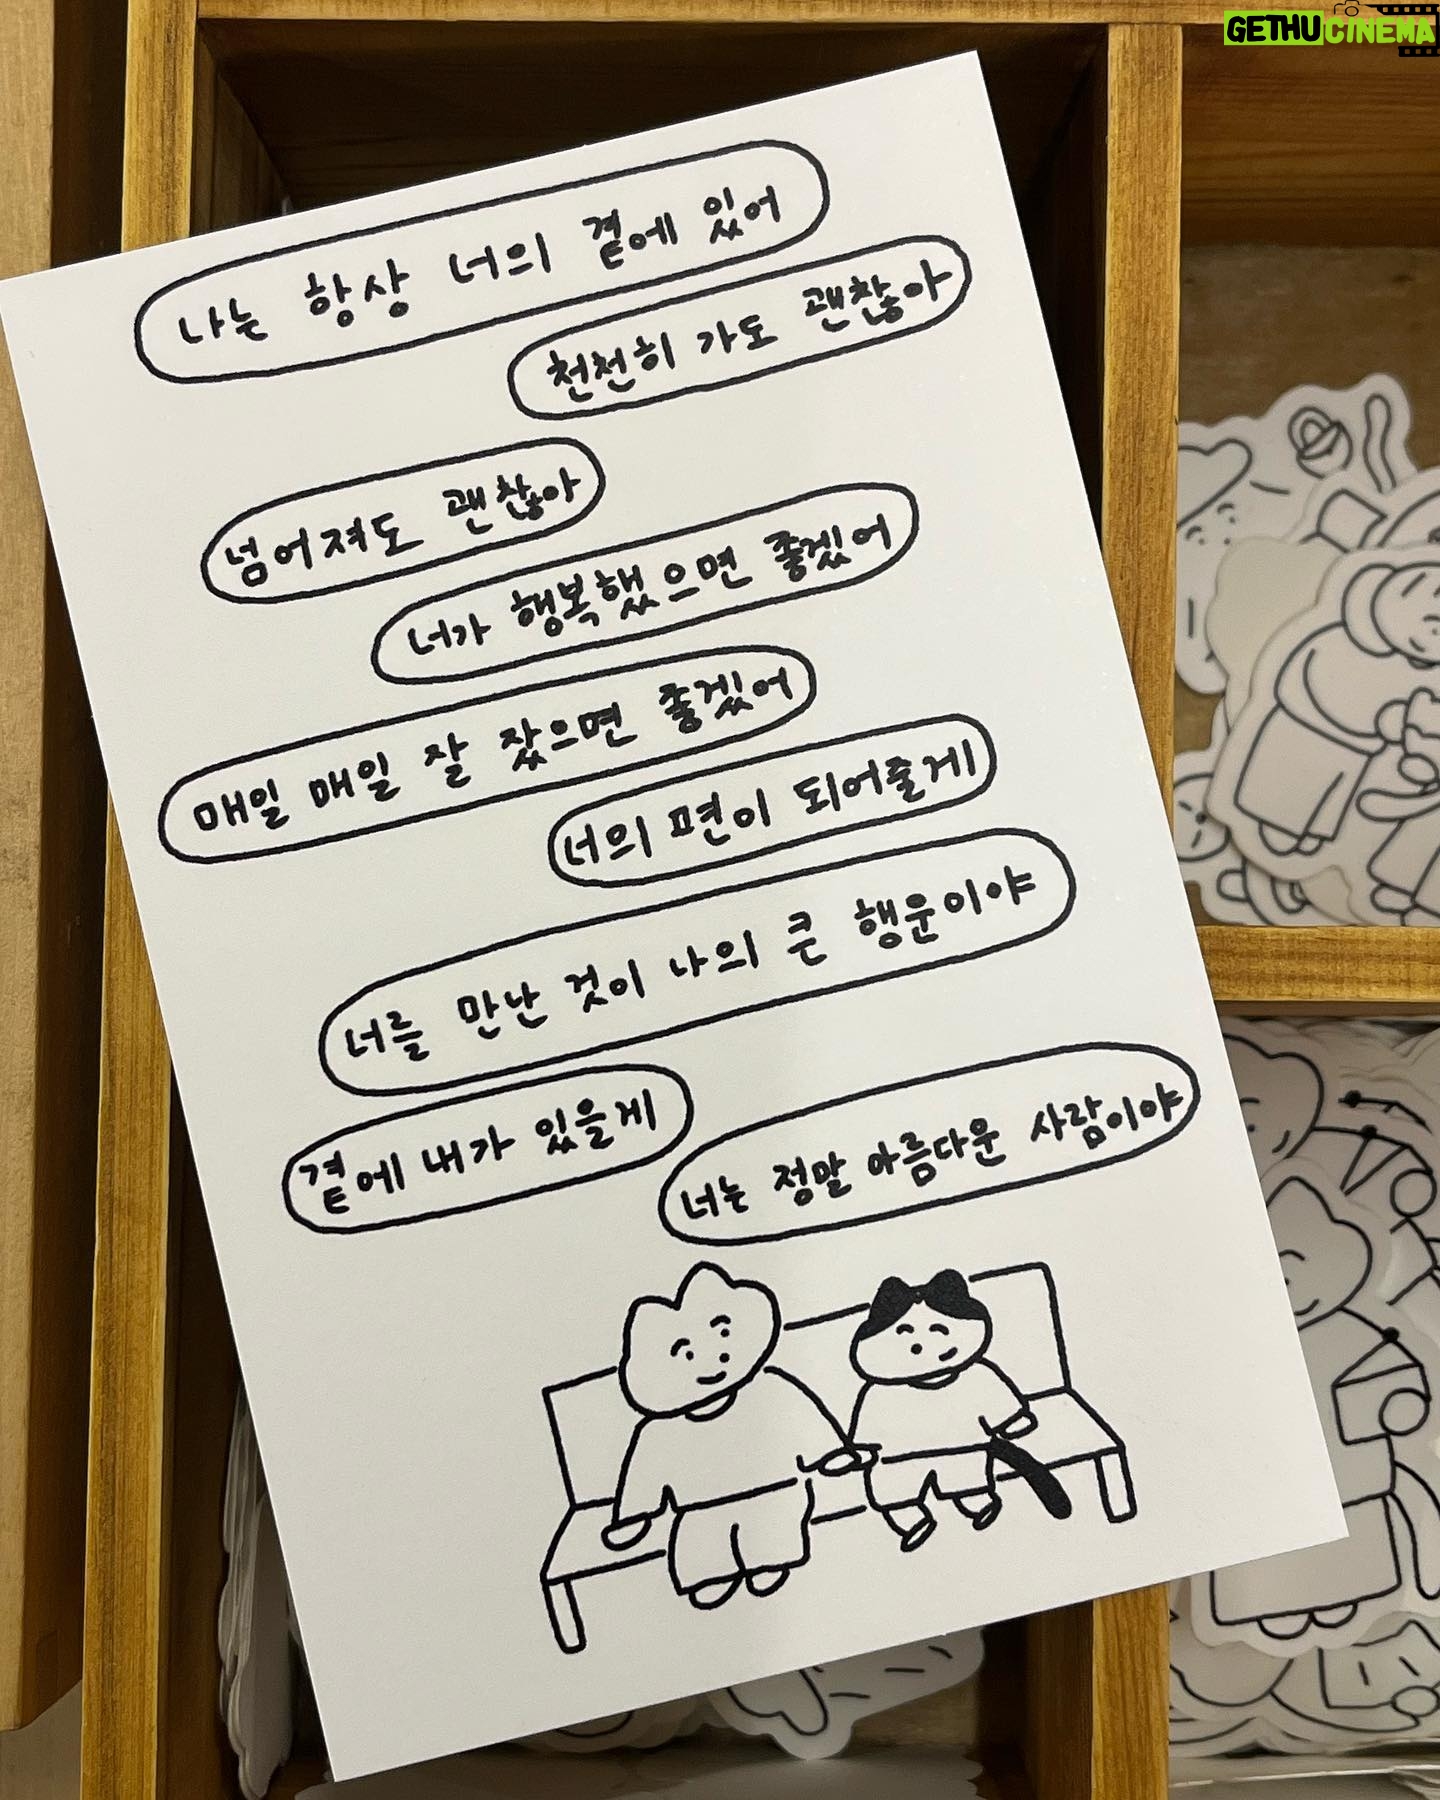 GETHUCINEMA
나는 항상 너의 곁에 있어
천천히 가도 괜찮아
넘어져도 괜찮아
너가 행복했으면 좋겠어
매일 매일 잘 잤으면 좋겠어
너의 편이 되어줄게
너를 만난 것이 나의 큰 행운이야
곁에 내가 있을게
너는 정말 아름다운 사람이야